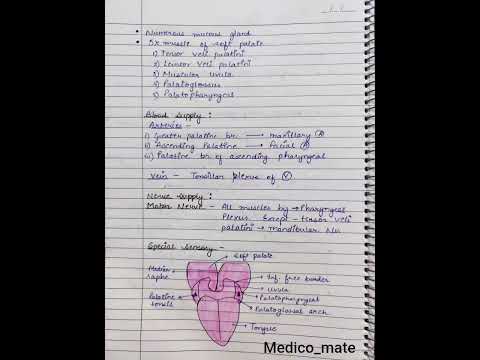 Numerous mucous gland
5x muscle of soft palate
1) Tensor veli palatini
2) Levator Veli palatini
3) Muscular uvula
4) Palatoglossus
5) Palatopharyngeus
Blood Supply :
Arteries -
i) Greater palatine br. → maxillary (A)
ii) Ascending Palatine → Facial (A)
iii) Palatine br. of ascending pharyngeal
Vein - Tonsillar plexus of (V)
Nerve Supply :
Motor Nerve - All muscles by → Pharyngeal
Plexus. Except - tensor veli
palatini → mandibular
Special Sensory -
Soft palate
Median raphe
Inf. free border
Uvula
Palatine tonsils
Palatopharyngeal
Palatoglossal arch
Tongue
Medico_mate